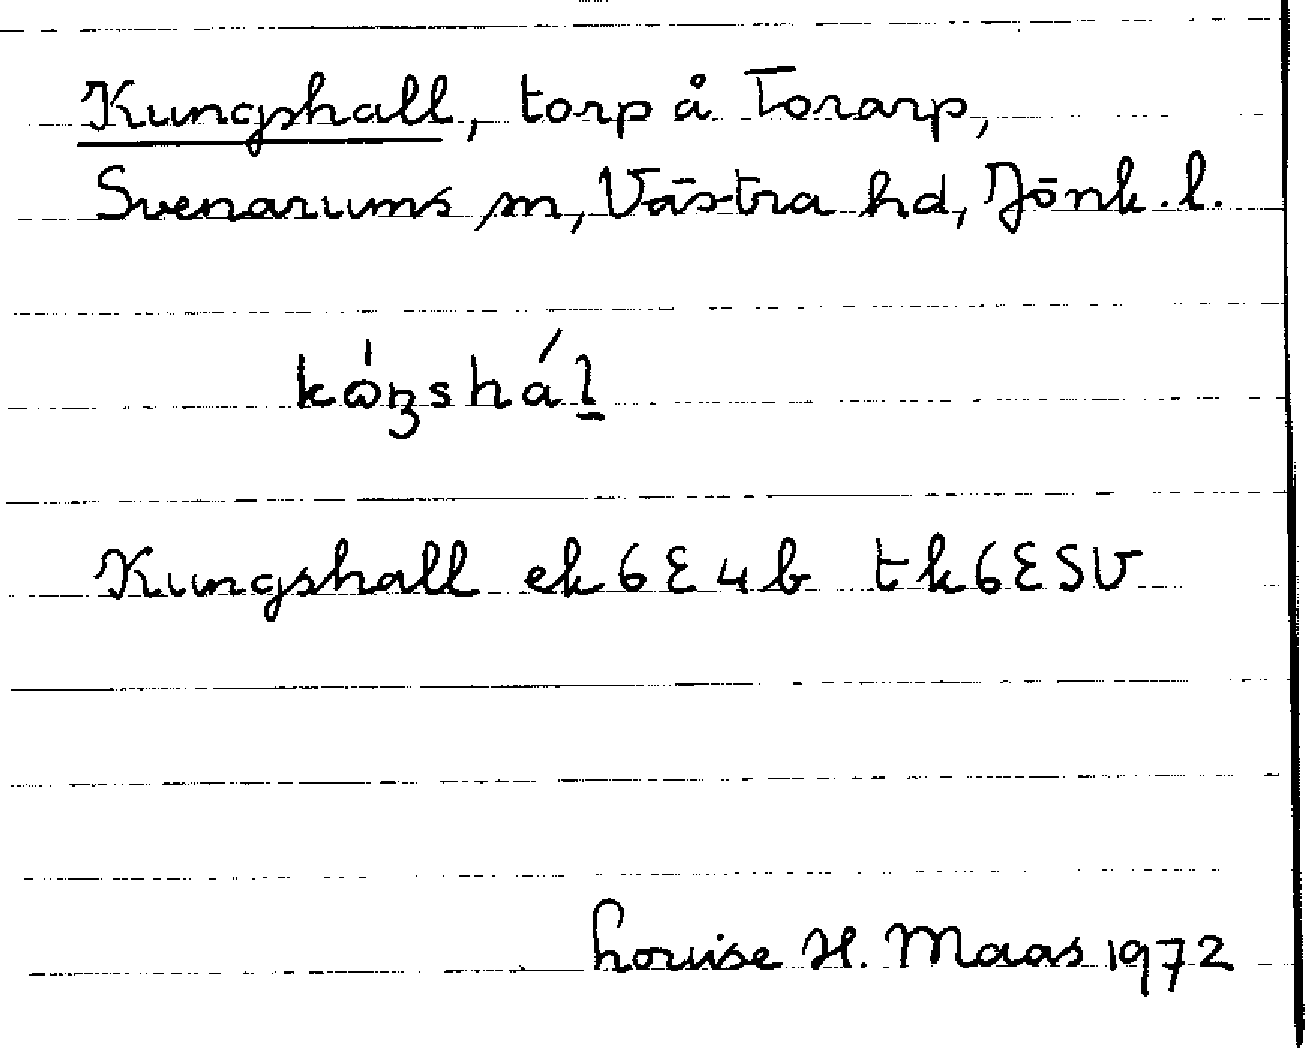 Kungshall, torp å Torarp,
Svenarums sn, Västra hd, Jönk. l.
kώŋshál̲
Kungshall ek 6E4b tk6ESV
Louise H. Maas 1972